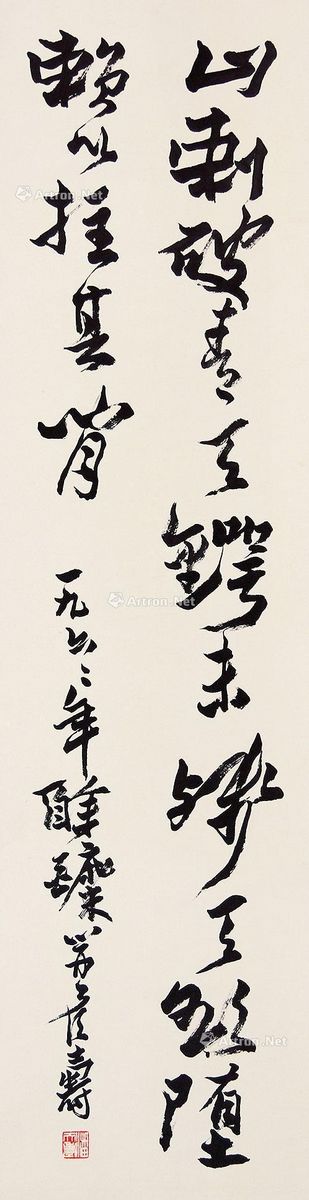 山刺破青天锷未残天欲堕
赖以拄其间
一九六二年醉 侯 封
Artron.Net
Artron.Net
Artron.Net
Artron.Net